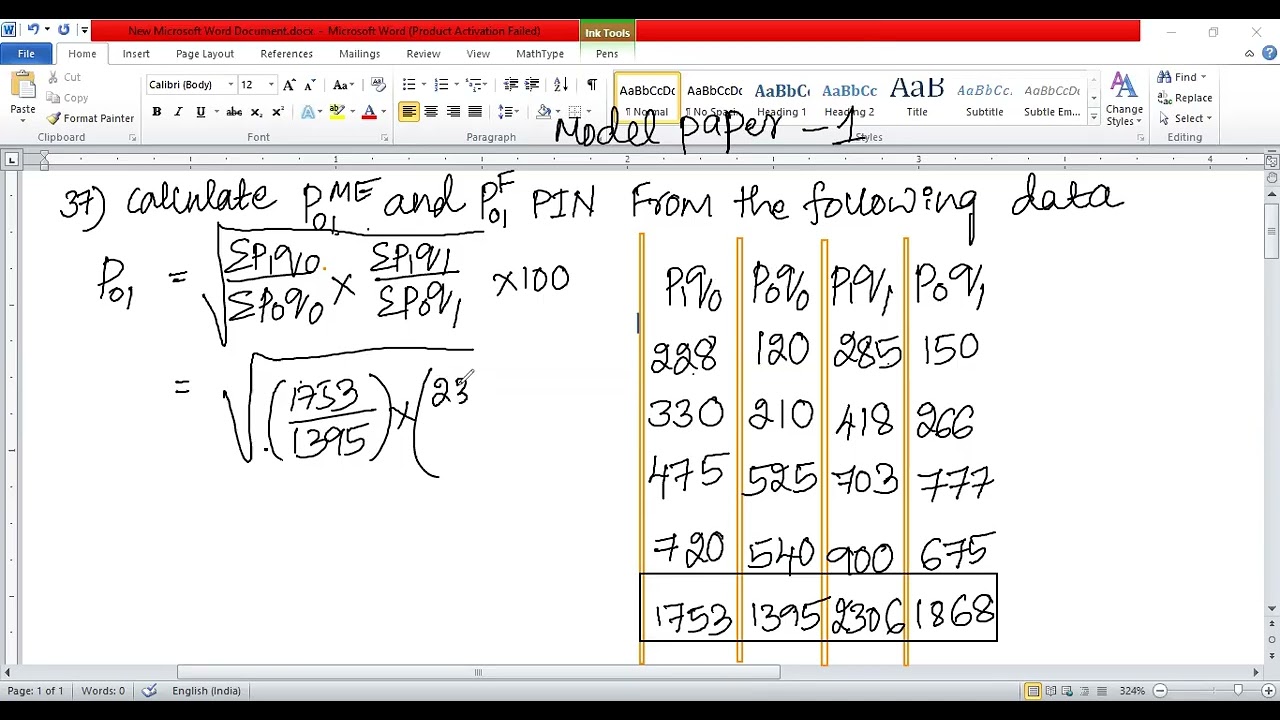 New Microsoft Word Document.docx - Microsoft Word (Product Activation Failed)
Ink Tools
File Home Insert Page Layout References Mailings Review View MathType Pens
Paste
Cut
Copy
Format Painter
Clipboard
Calibri (Body) 12
Font
Paragraph
AaBbCcDc AaBbCcDc AaBbCc AaBbCc AaB AaBbCc. AaBbCcDc
¶ Normal ¶ No Spacin Heading 1 Heading 2 Title Subtitle Subtle Em...
Styles
Change Styles
Find
Replace
Select
Editing
Model paper - 1
1 2 3 4
37) Calculate P₀₁^ME and P₀₁^F PIN From the following data
P₀₁ = √(ΣP₁q₀/ΣP₀q₀ × ΣP₁q₁/ΣP₀q₁) ×100
= √(1753/1395) × (23
P₁q₀ P₀q₀ P₁q₁ P₀q₁
228 120 285 150
330 210 418 266
475 525 703 777
720 540 900 675
1753 1395 2306 1868
Page: 1 of 1 Words: 0 English (India) 324%